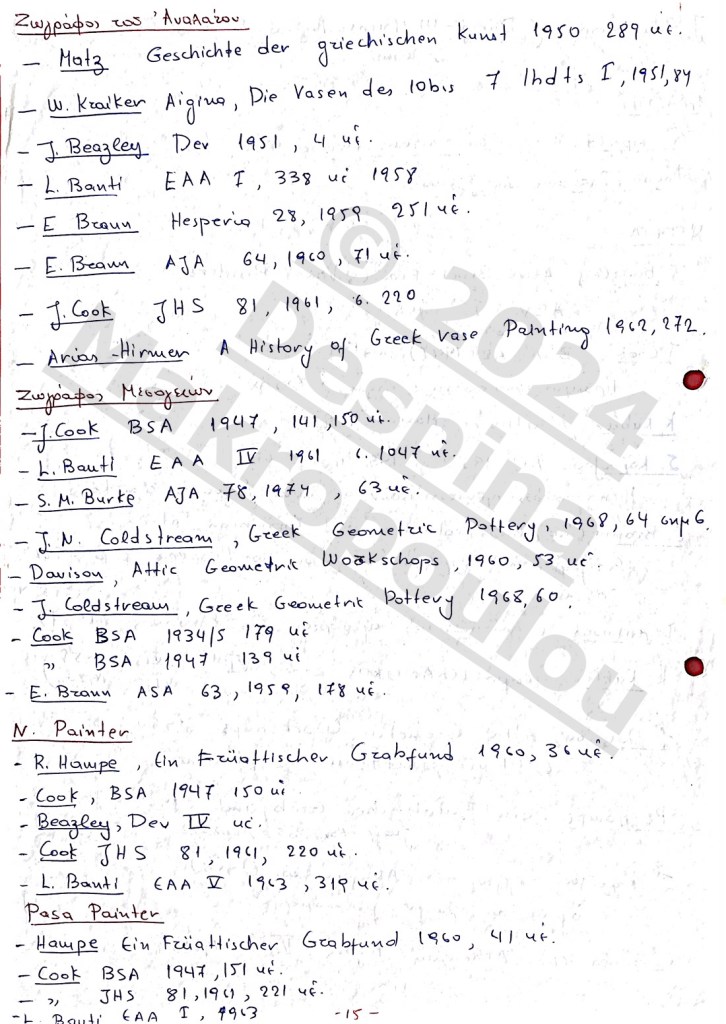 Ζωγράφος του Ἀναλάτου
- Matz Geschichte der griechischen Kunst 1950 289 υἑ.
- W. Kraiker Aigina, Die Vasen des 10 bis 7 Ihdts I, 1951, 84
- J. Beazley Dev 1951, 4 υἑ.
- L. Banti EAA I, 338 υἑ 1958
- E Braun Hesperia 28, 1959 251 υἑ.
- E. Braun AJA 64, 1960, 71 υἑ.
- J. Cook JHS 81, 1961, σ. 220
- Arias-Hirmer A History of Greek vase Painting 1962, 272.
Ζωγράφος Μεσογείων
- J. Cook BSA 1947, 141, 150 υἑ.
- L. Banti EAA IV 1961 σ. 1047 υἑ.
- S. M. Burke AJA 78, 1974, 63 υἑ.
- J. N. Coldstream, Greek Geometric Pottery, 1968, 64 σημ 6.
- Davison, Attic Geometric Workschops, 1960, 53 υἑ.
- J. Coldstream, Greek Geometric Pottery 1968, 60.
- Cook BSA 1934/5 179 υἑ
" BSA 1947 139 υἑ
- E. Braun ASA 63, 1959, 178 υἑ.
N. Painter
- R. Hampe, Ein Früattischer Grabfund 1960, 36 υἑ.
- Cook, BSA 1947 150 υἑ
- Beazley, Dev IV υἑ.
- Cook JHS 81, 1961, 220 υἑ.
- L. Banti EAA V 1963, 319 υἑ.
Pasa Painter
- Hampe Ein Früattischer Grabfund 1960, 41 υἑ.
- Cook BSA 1947, 151 υἑ.
- " JHS 81, 1961, 221 υἑ.
- L. Banti EAA I, 1963
-15-
© 2024
Despina
Makropoulou